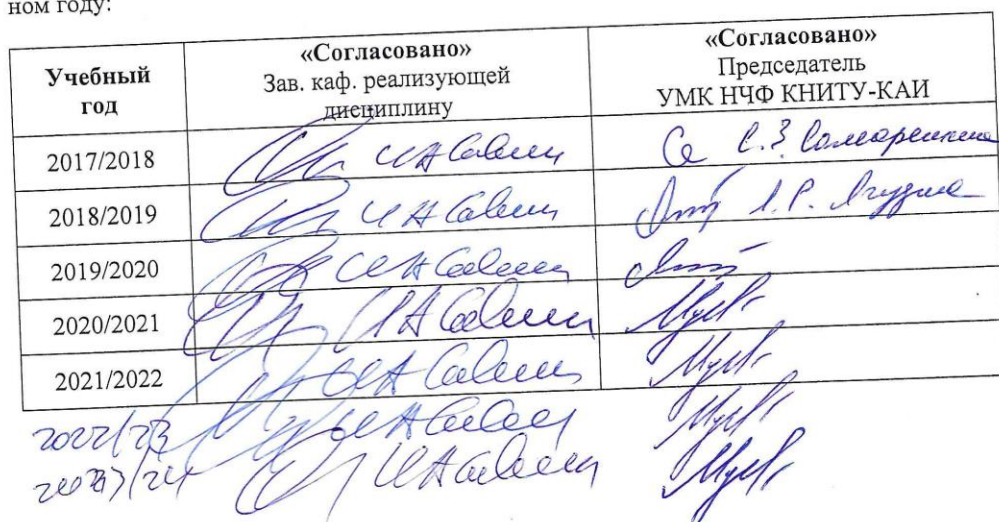 ном году:
Учебный год
«Согласовано» Зав. каф. реализующей дисциплину
«Согласовано» Председатель УМК НЧФ КНИТУ-КАИ
2017/2018 И А Савин С.З.
2018/2019 И А Савин Л.Р.
2019/2020 И А Савин
2020/2021 И А Савин
2021/2022 И А Савин
2022/23 И А Савин
2023/24 И А Савин